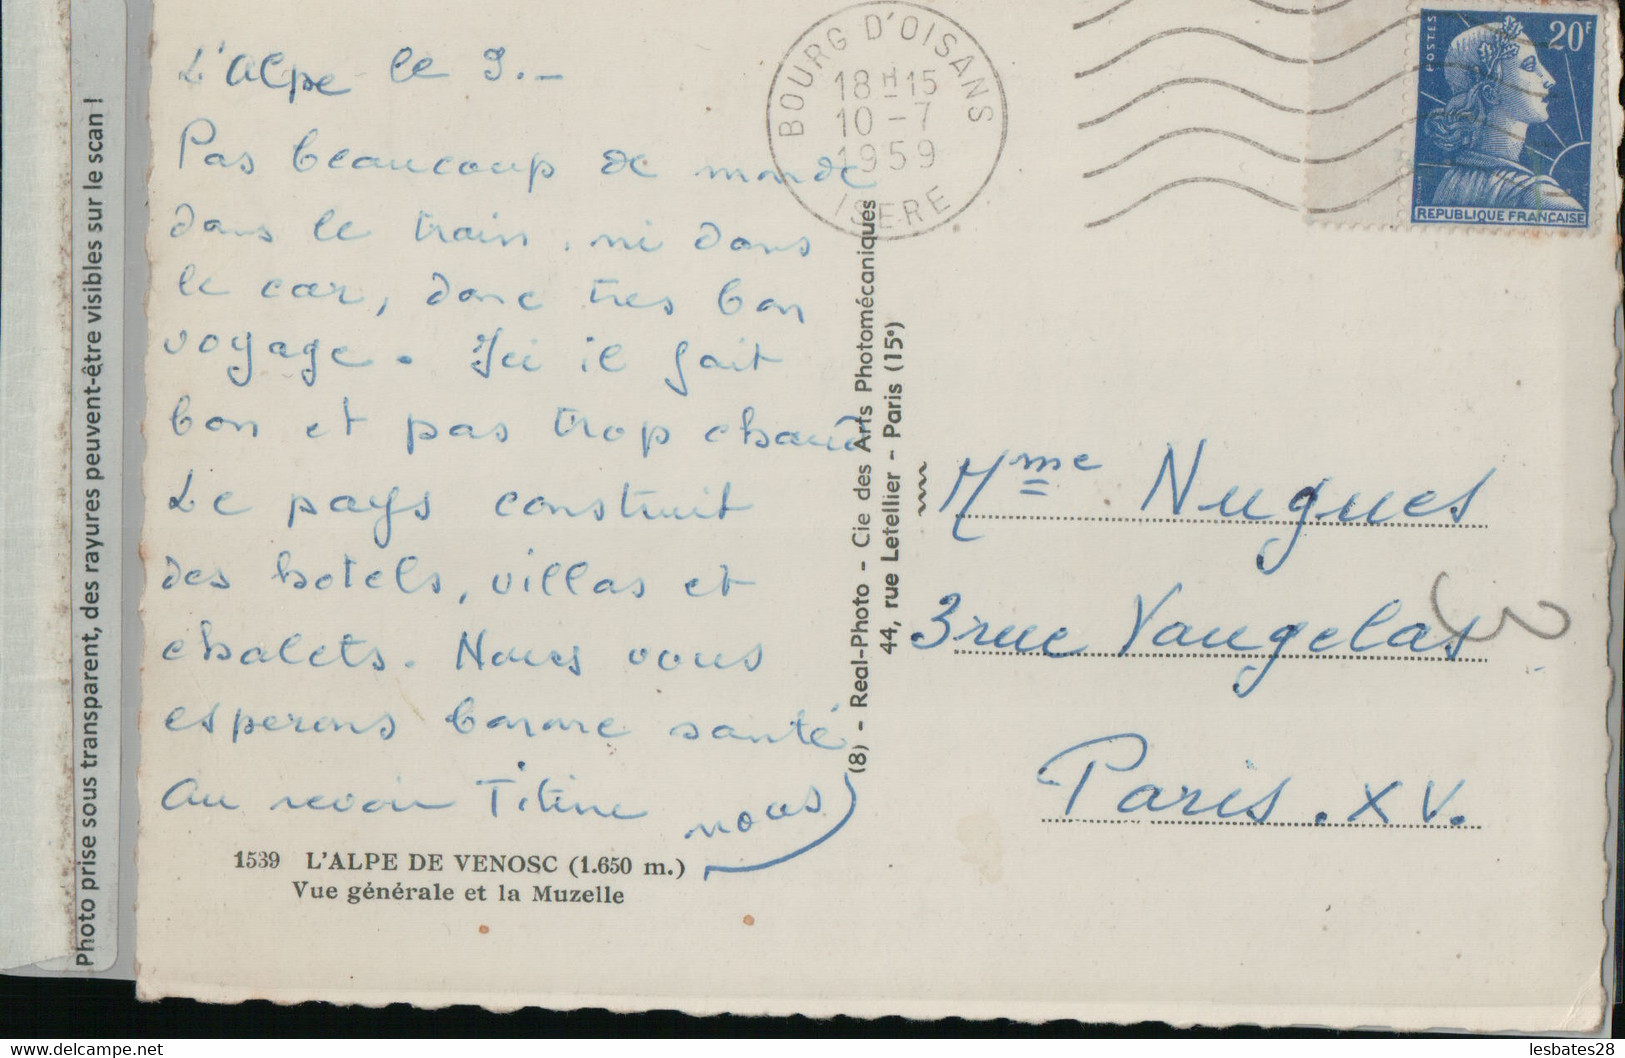 L'Alpe le 9.-
Pas beaucoup de monde
dans le train, ni dans
le car, donc tres bon
voyage. Ici il fait
bon et pas trop chaud
Le pays construit
des hotels, villas et
chalets. Nous vous
esperons bonne santé
Au revoir Titine nous
1539 L'ALPE DE VENOSC (1.650 m.)
Vue générale et la Muzelle
(8) - Real-Photo - Cie des Arts Photomécaniques
44, rue Letellier - Paris (15e)
BOURG D'OISANS
18H15
10-7
1959
ISERE
POSTES
20F
REPUBLIQUE FRANÇAISE
Mme Nugues
3 rue Vaugelas
Paris. XV.
3
Photo prise sous transparent, des rayures peuvent-être visibles sur le scan !
lesbates28